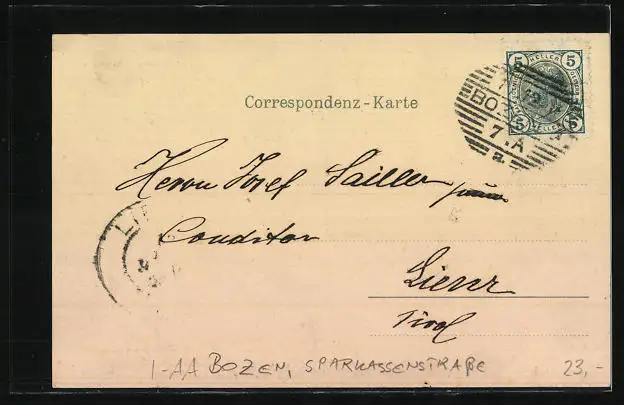 5 HELLER 5
Correspondenz-Karte
BOZ
7.A
a.
Herrn Josef Sailler junior
Conditor
LI
Lienz
Tirol
I-AA BOZEN, SPARKASSENSTRAßE 23,-